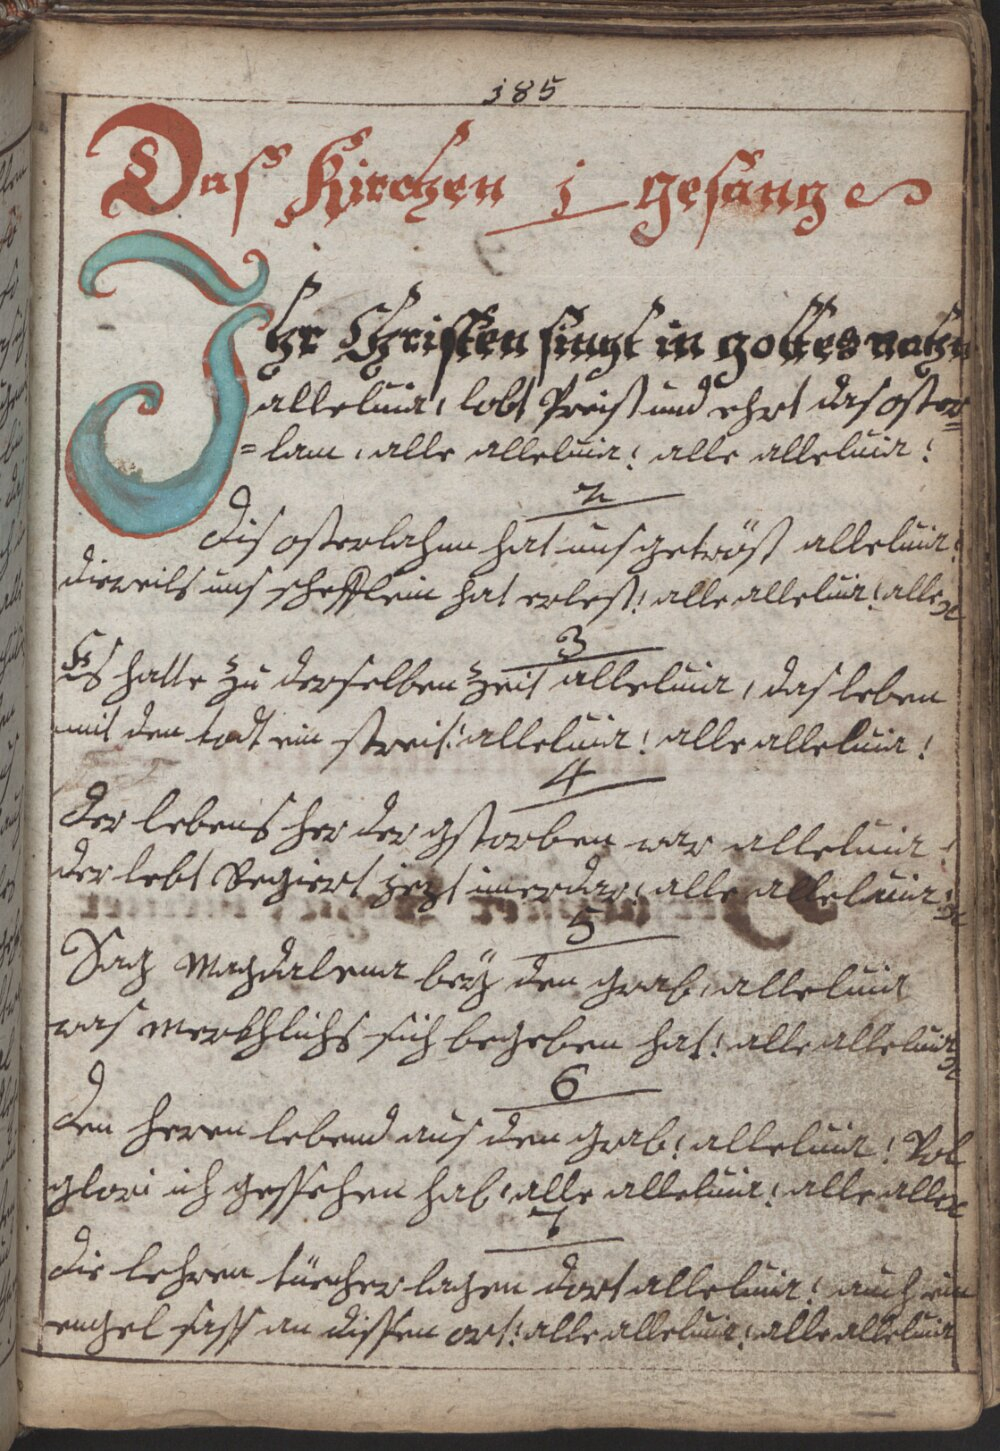 185
Das Kirchen j gesang
Ihr Christen singt in gottes nahm
alleluia, lobt Preiß und ehrt das oster
=lam, alle alleluia! alle alleluia!
2
Dis osterlahm hat uns getröst alleluia!
dieweils uns schefflein hat erlest! alle alleluia! alle
3
Es hatte zu derselben zeit alleluia, das leben
mit den todt ein streit! alleluia! alle alleluia!
4
Der lebens her der gstorben war alleluia!
der lebt Regiert jezt imerdar! alle alleluia!
5
Sag Magdalena beÿ den grab, alleluia
was merkhlichs sich begeben hat! alle alleluia
6
Den herrn lebend aus den grab! alleluia! Vol
glori ich gessehen hab! alle alleluia! alle alle
7
Die lehren tüecher lagen dort alleluia! auch ein
engel sass an dissen ort! alle alleluia! alle alleluia